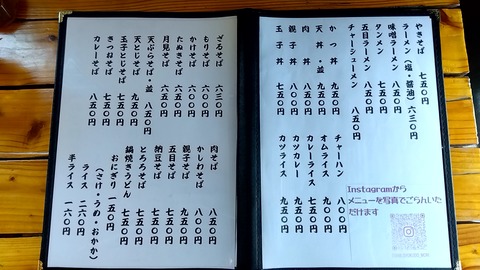 やきそば 七五〇円
ラーメン（塩・醤油）六三〇円
味噌ラーメン 七五〇円
タンメン 七五〇円
五目ラーメン 八五〇円
チャーシューメン 八五〇円
かつ丼 九五〇円
天丼・並 九五〇円
肉丼 八五〇円
親子丼 八〇〇円
玉子丼 七五〇円
チャーハン 八〇〇円
オムライス 九〇〇円
カレーライス 七五〇円
カツカレー 九五〇円
カツライス 九五〇円
Instagramから
メニューを写真でごらんいた
だけます
ざるそば 六三〇円
もりそば 六〇〇円
かけそば 六〇〇円
たぬきそば 六五〇円
月見そば 六五〇円
天ぷらそば・並 八五〇円
天とじそば 九五〇円
玉子とじそば 七五〇円
きつねそば 七五〇円
カレーそば 八五〇円
肉そば 八五〇円
かしわそば 八〇〇円
親子そば 八五〇円
五目そば 八五〇円
納豆そば 七五〇円
とろろそば 七五〇円
鍋焼きうどん 七五〇円
おにぎり 一五〇円
（さけ・うめ・おかか）
ライス 二六〇円
半ライス 一六〇円